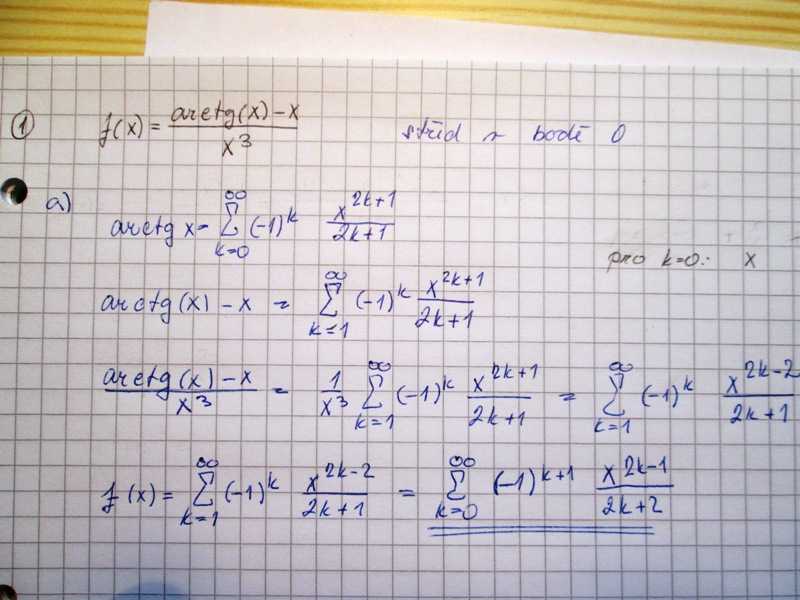 ① f(x) = (arctg(x) - x) / x³ střed v bodě 0
a) arctg x = ∑_{k=0}^{∞} (-1)^k x^{2k+1} / (2k+1)
pro k=0: x
arctg(x) - x = ∑_{k=1}^{∞} (-1)^k x^{2k+1} / (2k+1)
(arctg(x) - x) / x³ = 1/x³ ∑_{k=1}^{∞} (-1)^k x^{2k+1} / (2k+1) = ∑_{k=1}^{∞} (-1)^k x^{2k-2} / (2k+1)
f(x) = ∑_{k=1}^{∞} (-1)^k x^{2k-2} / (2k+1) = ∑_{k=0}^{∞} (-1)^{k+1} x^{2k-1} / (2k+2)